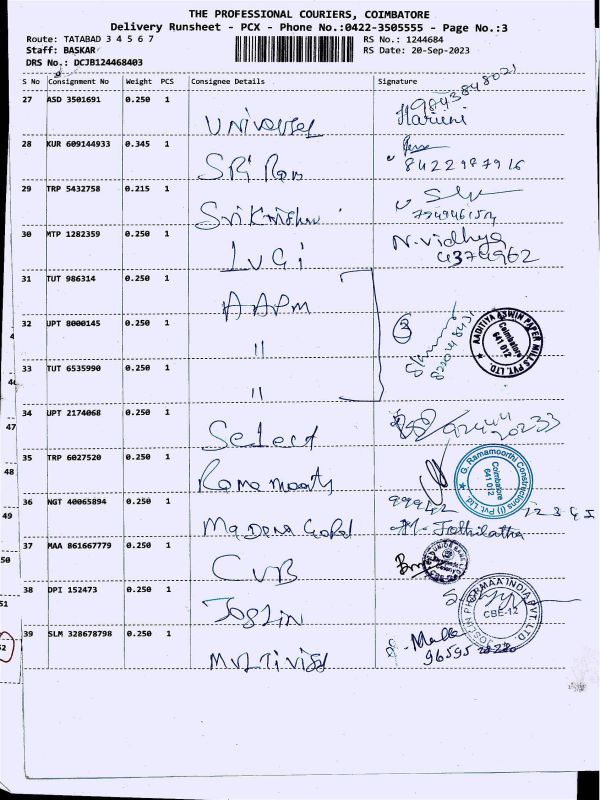 THE PROFESSIONAL COURIERS, COIMBATORE
Delivery Runsheet - PCX - Phone No.:0422-3505555 - Page No.:3
Route: TATABAD 3 4 5 6 7
RS No.: 1244684
Staff: BASKAR
RS Date: 20-Sep-2023
DRS No.: DCJB124468403
S No Consignment No Weight PCS Consignee Details Signature
27 ASD 3501691 0.250 1 Universel 9843848021
Harini
28 KUR 609144933 0.345 1 SRi Ram
8422987916
29 TRP 5432758 0.215 1 Sri Krishna
30 MTP 1282359 0.250 1 LUGi N.Vidhya
4374962
31 TUT 986314 0.250 1 AAPM
32 UPT 8000145 0.250 1 "
3
AADITIYA ASWIN PAPER MILLS PVT. LTD.
Coimbatore
641 012
33 TUT 6535990 0.250 1 "
34 UPT 2174068 0.250 1 Select 92444
20233
35 TRP 6027520 0.250 1 Ramamoorthy
G. Ramamoorthi Constructions (I) Pvt. Ltd
Coimbatore
641 012
36 NGT 40065894 0.250 1 Madona Gold 99942 12345
Jothilatha
37 MAA 861667779 0.250 1 CVB
38 DPI 152473 0.250 1 Joslin
JOSLIN PHARMAA INDIA PVT. LTD
CBE-12
39 SLM 328678798 0.250 1 Multivisi
96595
47
48
49
50
51
52